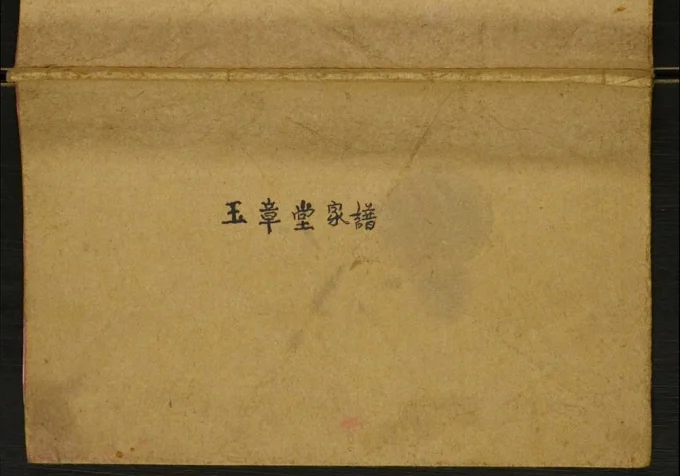 玉章堂家譜